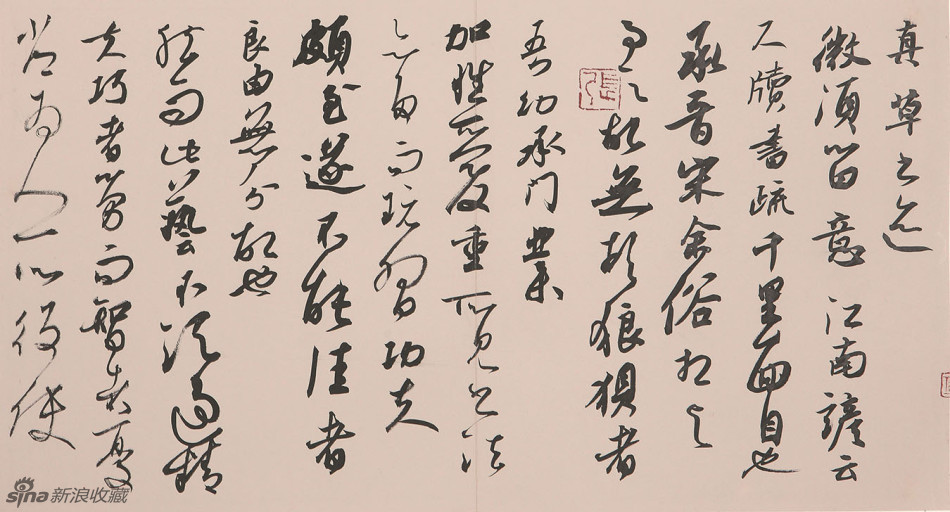 真草书迹
微須留意江南諺云
尺牘書疏千里面目也
承晋宋余俗相与
事之故無頓狼狽者
吾幼承門業
加性愛重所見书法
亦多而玩習功夫
頗至遂不能佳者
良由無分故也
然而此藝不須過精
夫巧者勞而智者憂
常為人所役使
張
sina新浪收藏